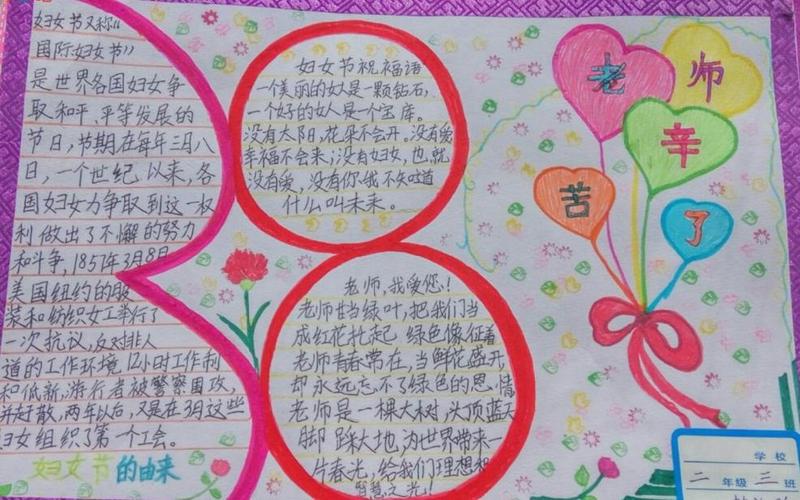 妇女节又称“
国际妇女节”
是世界各国妇女争
取和平、平等发展的
节日，节期在每年三月八
日，一个世纪以来，各
国妇女为争取到这一权
利做出了不懈的努力
和斗争，1857年3月8日
美国纽约的服
装和纺织女工举行了
一次抗议，反对非人
道的工作环境12小时工作制
和低薪，游行者被警察围攻，
并赶散，两年以后，又是在3月这些
妇女组织了第一个工会。
妇女节的由来
妇女节祝福语
一个美丽的女人是一颗钻石，
一个好的女人是一个宝库。
没有太阳，花朵不会开，没有爱
幸福不会来；没有妇女，也就
没有爱，没有你我不知道
什么叫未来。
老师，我爱您！
老师甘当绿叶，把我们当
成红花托起，绿色像征着
老师青春常在，当鲜花盛开，
却永远忘不了绿色的恩情
老师是一棵大树，头顶蓝天
脚踩大地，为世界带来一
片春光，给我们理想和
智慧之光！
老师
辛
苦了
学校
二年级三班